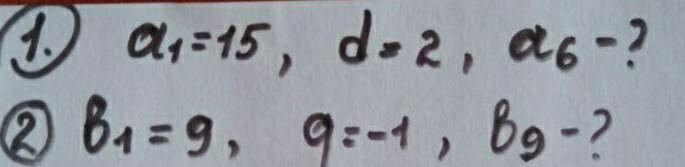 1. a₁=15, d=2, a₆-?
2 b₁=9, q=-1, b₉-?